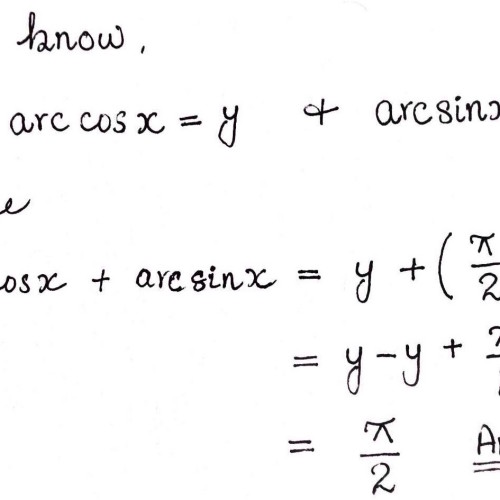 know,
arc cos x = y & arcsinx
cosx + arcsinx = y + ( π/2
= y - y + π
= π/2